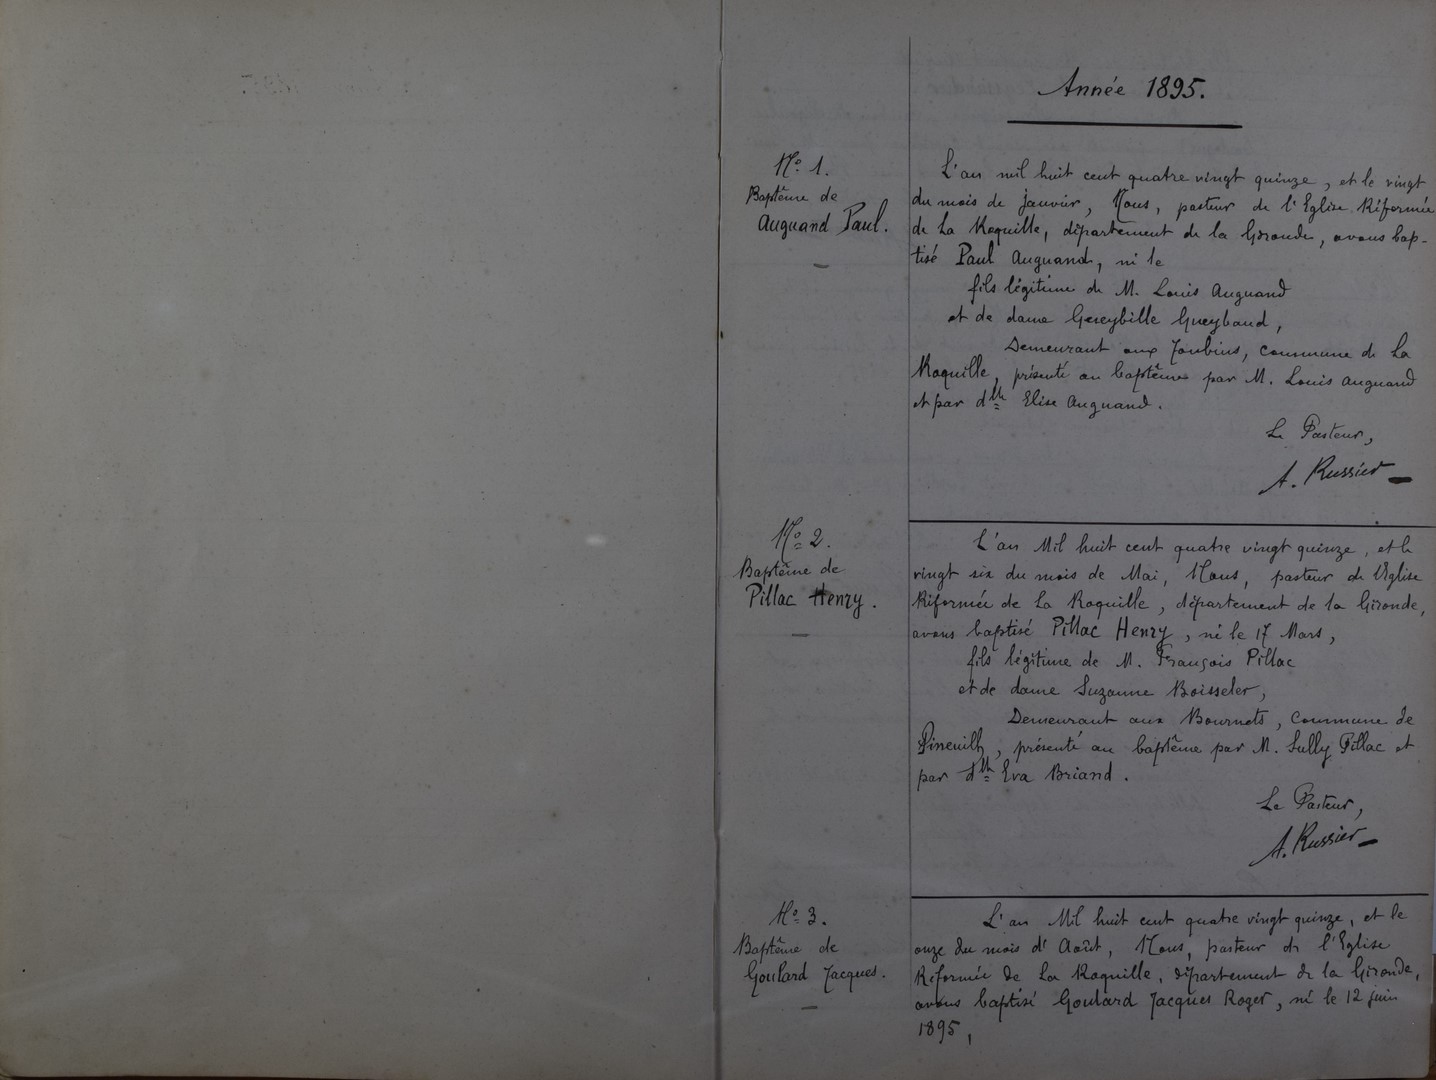 Année 1895.
No. 1.
Baptême de
Auguand Paul.
L'an mil huit cent quatre vingt quinze, et le vingt
du mois de janvier, Nous, pasteur de l'Eglise Réformée
de La Roquille, département de la Gironde, avons bap-
tisé Paul Auguand, né le
fils légitime de M. Louis Auguand
et de dame Gueybaud,
Demeurant aux Joubins, commune de La
Roquille, présenté au baptême par M. Louis Auguand
et par dlle Elise Auguand.
Le Pasteur,
A. Russier
No. 2.
Baptême de
Pillac Henry.
L'an Mil huit cent quatre vingt quinze, et le
vingt six du mois de Mai, Nous, pasteur de l'Eglise
Réformée de La Roquille, département de la Gironde,
avons baptisé Pillac Henry, né le 17 Mars,
fils légitime de M. François Pillac
et de dame Suzanne Boisseler,
Demeurant aux Bournets, commune de
Pineuilh, présenté au baptême par M. Sully Pillac et
par dlle Eva Briand.
Le Pasteur,
A. Russier
No. 3.
Baptême de
Goulard Jacques.
L'an Mil huit cent quatre vingt quinze, et le
onze du mois d'Août, Nous, pasteur de l'Eglise
Réformée de La Roquille, département de la Gironde,
avons baptisé Goulard Jacques Roger, né le 12 juin
1895,